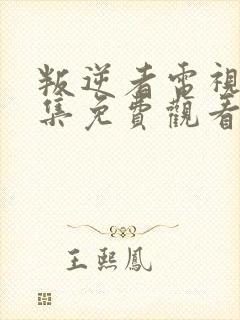 叛逆者電視
集免費觀看
王熙鳳